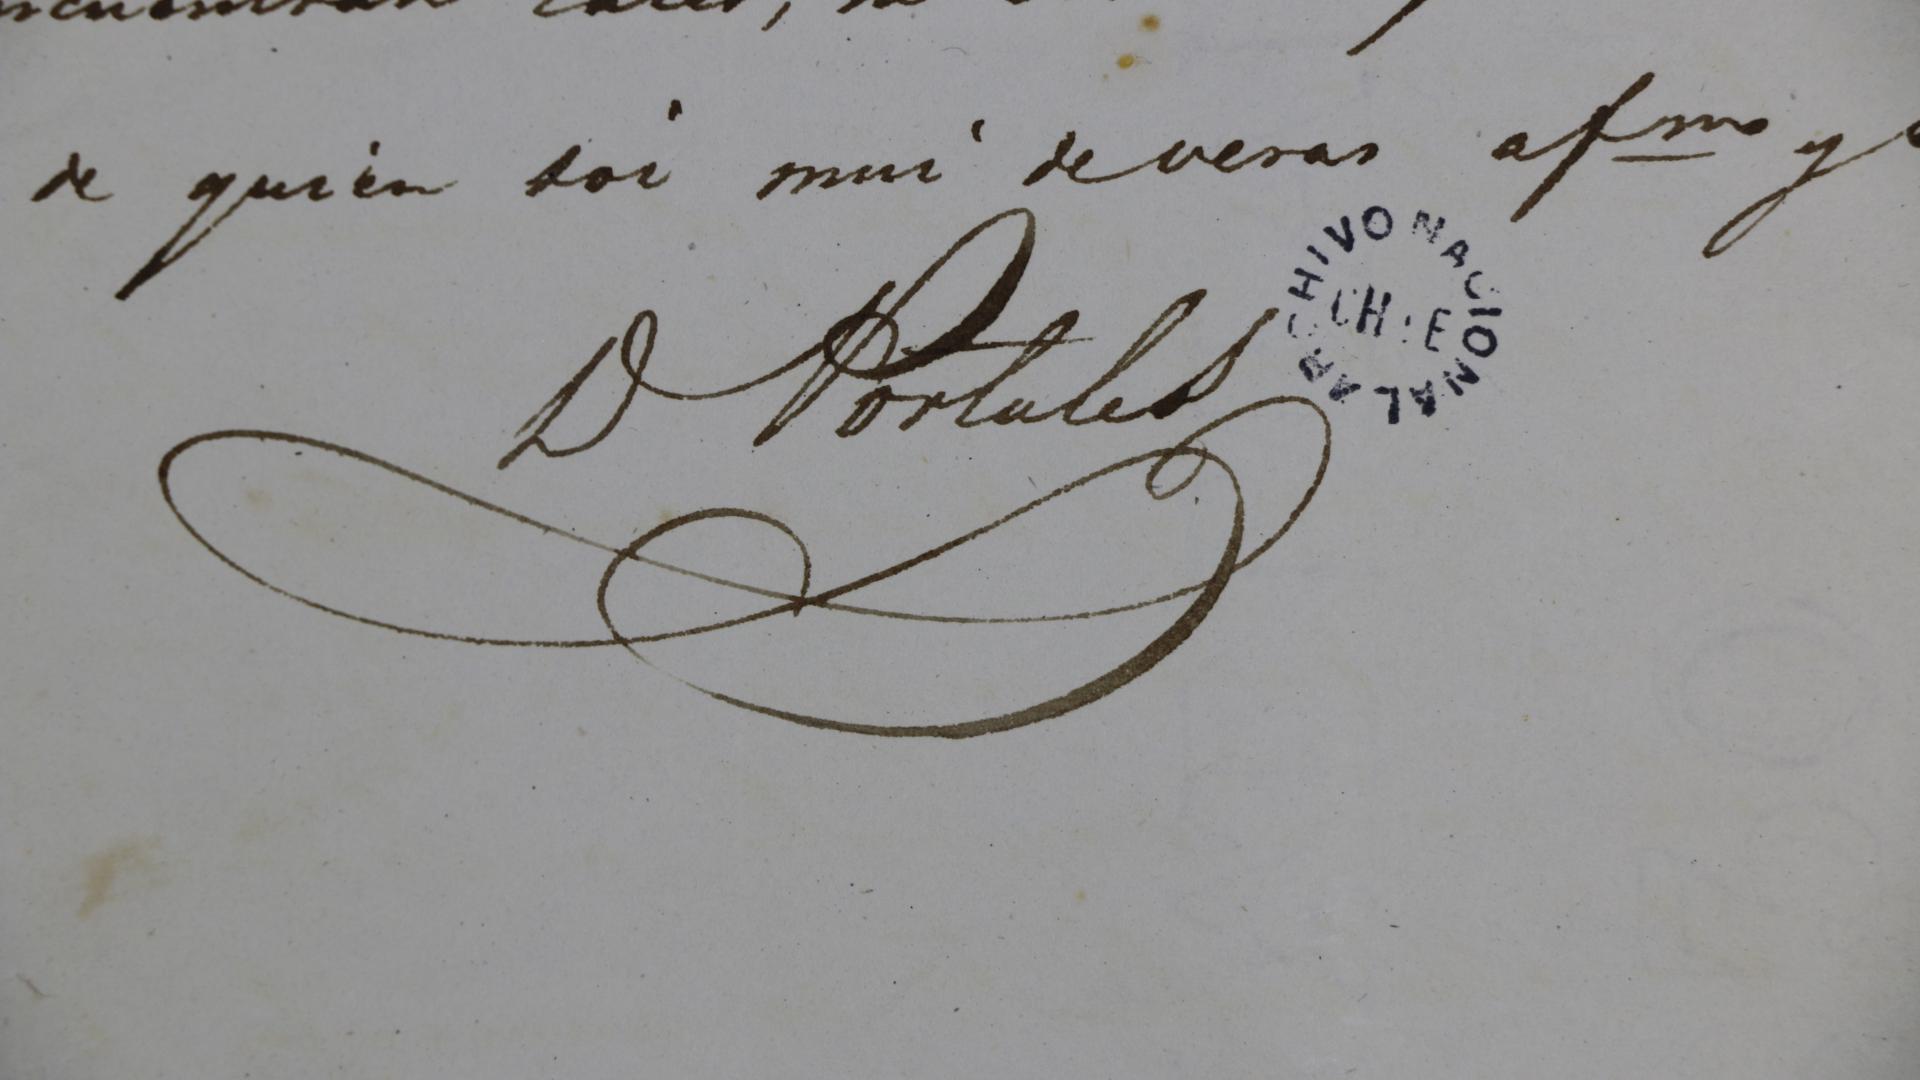 de quien soi mui deveras afmo y
D Portales
ARCHIVO NACIONAL
CHILE